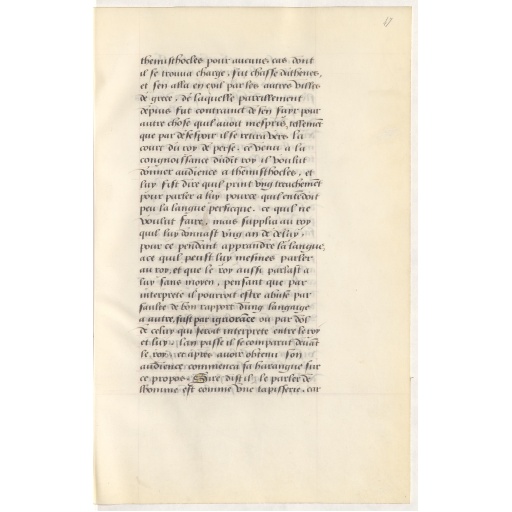 17
themisthocles pour aucuns cas dont
il se trouva charge, fut chasse dathenes,
et sen alla en exil par les autres villes
de grece, de laquelle pareillement
depuis fut contrainct de sen fuyr pour
autre chose quil avoit mespris, tellement
que par desespoir il se retira vers la
court du roy de perse, ce venu a la
congnoissance dudit roy il voulut
donner audience a themisthocles, et
luy fist dire quil print ung truchement
pour parler a luy pource quil entendoit
peu la langue persicque, ce quil ne
voulut faire, mais supplia au roy
quil luy donnast ung an de delay,
pour ce pendant apprandre la langue,
a ce quil peust luy mesmes parler
au roy, et que le roy aussi parlast a
luy sans moyen, pensant que par
interprete il pourroit estre abuse par
faulte de bon rapport dung langaige
a autre, fust par ignorance ou par dol
de celuy qui seroit interprete entre le roy
et luy, lan passe il se comparut devant
le roy, et apres avoir obtenu son
audience commenca sa harangue sur
ce propos. Sire, dist il, le parler de
lhomme est comme une tapisserie, car